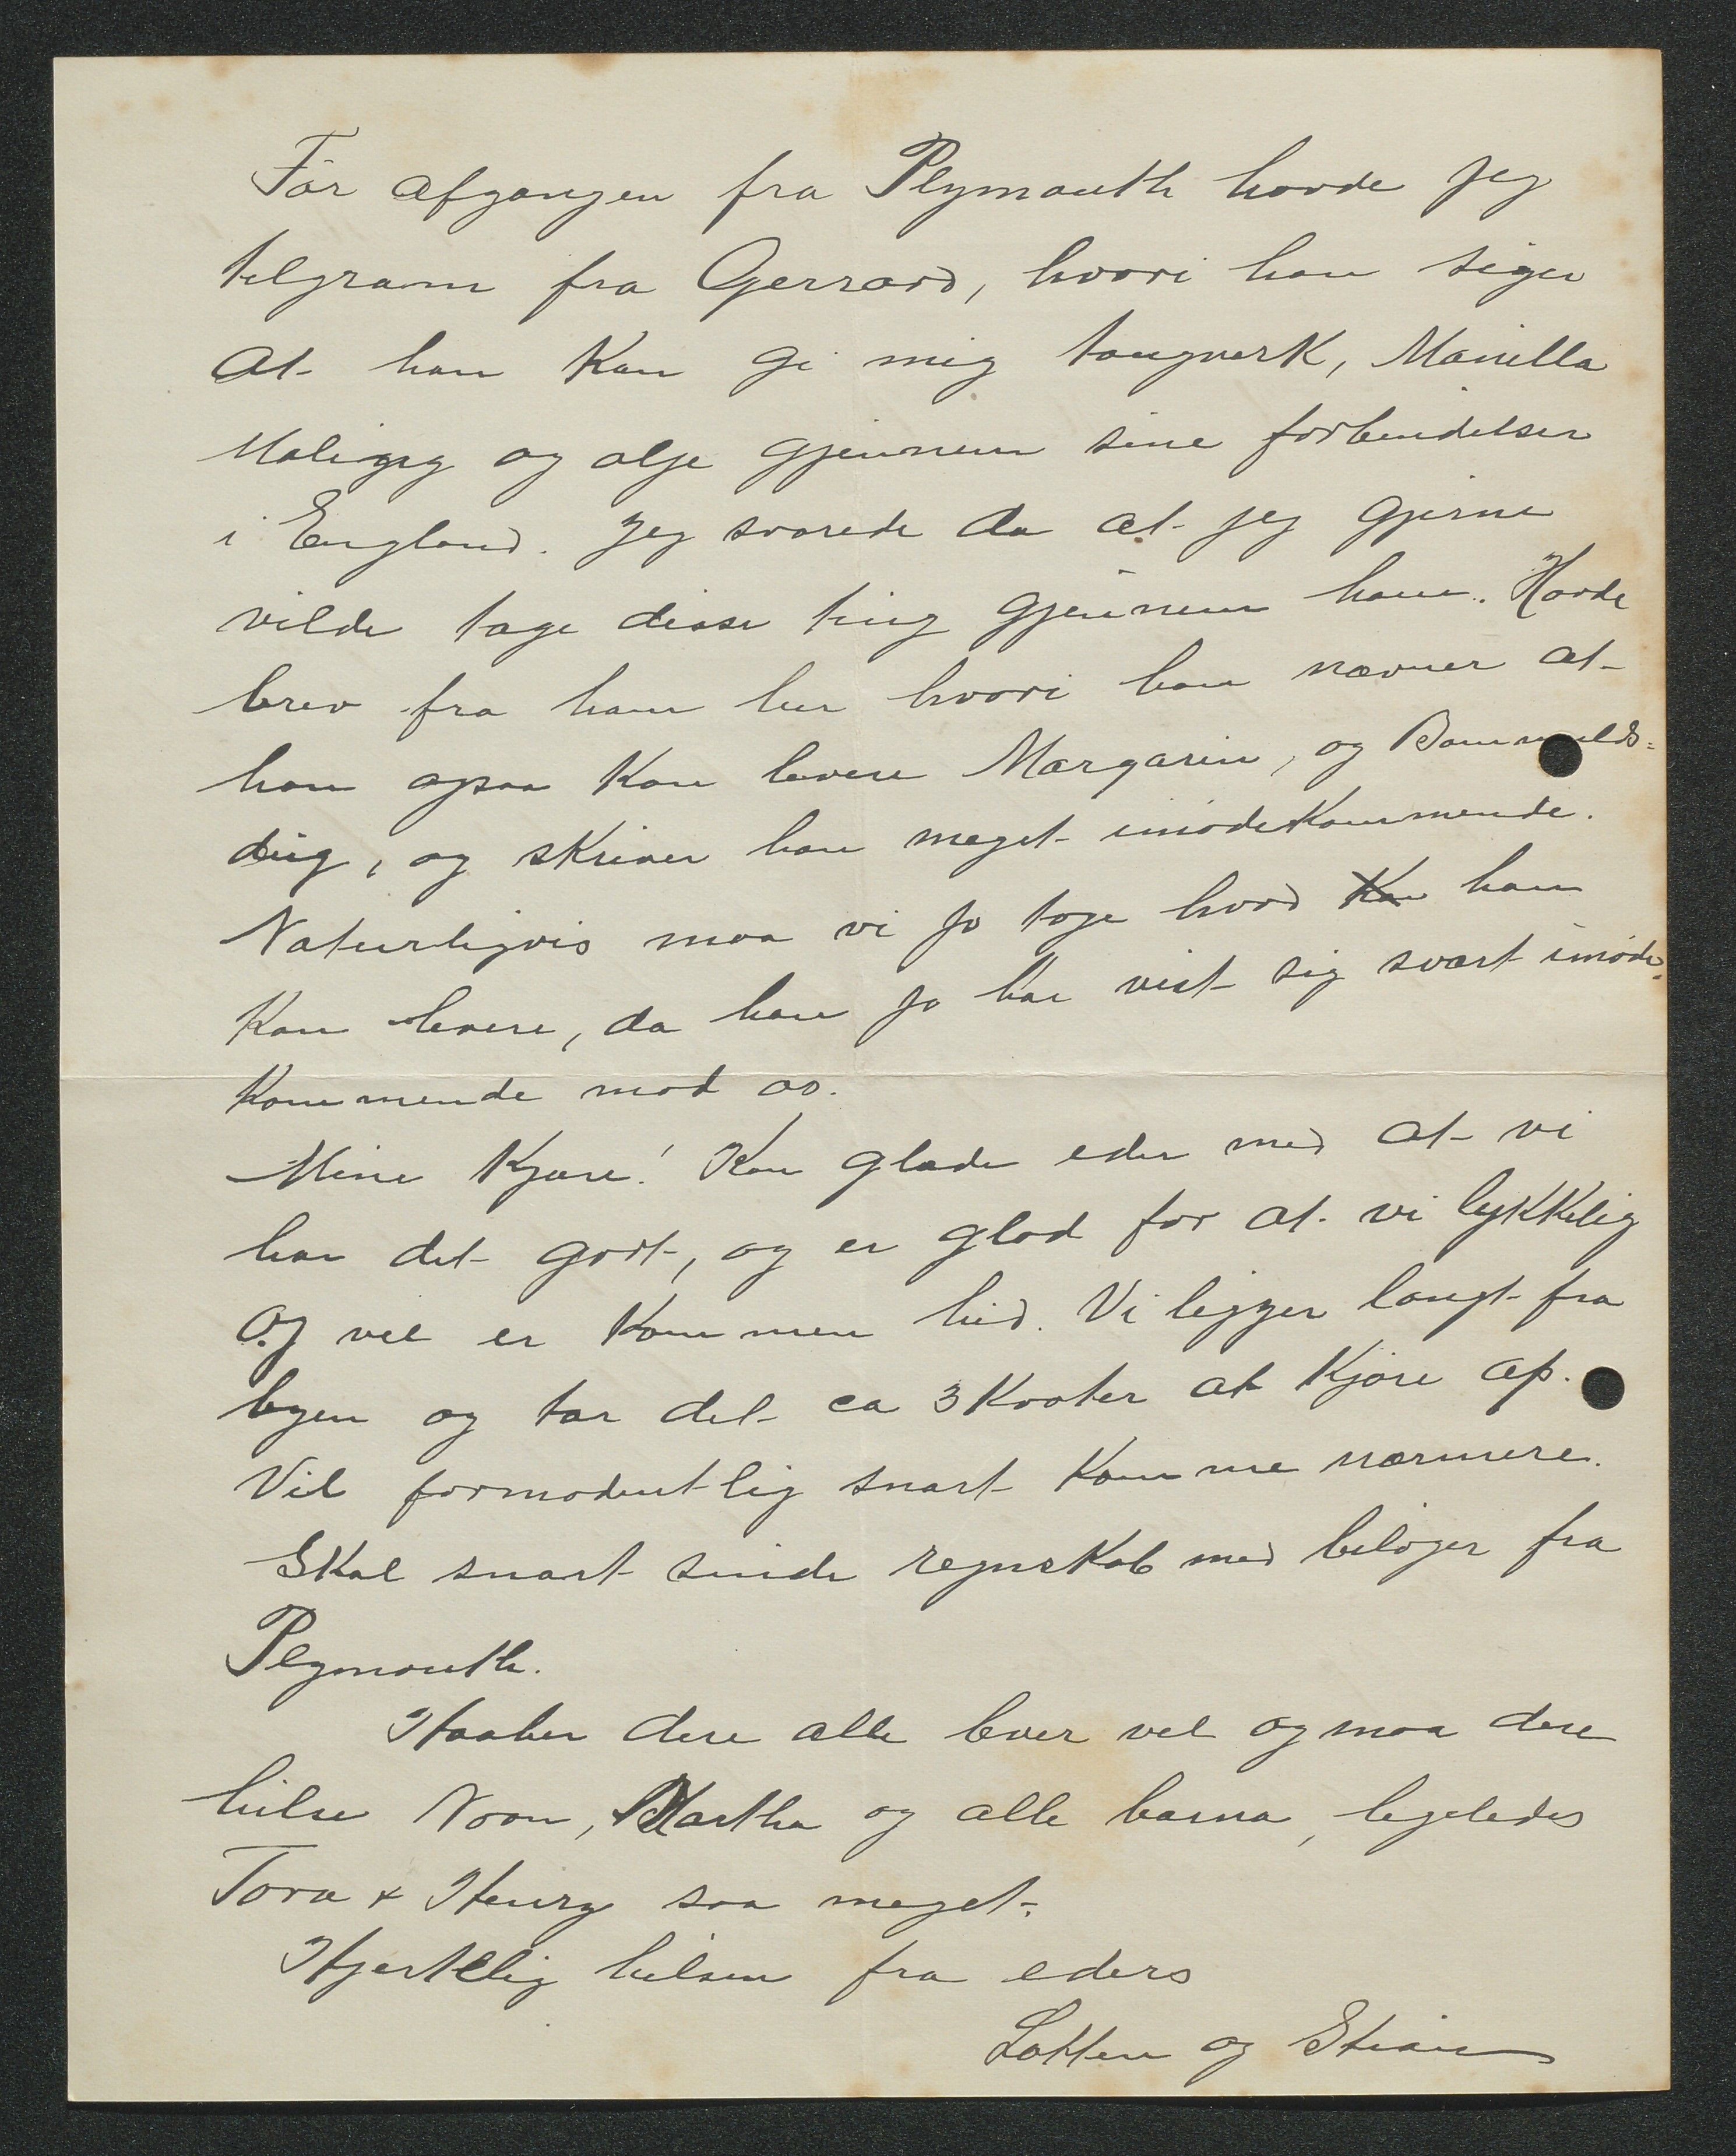 Før afgangen fra Plymouth havde jeg
telgram fra Gerrard, hvori han siger
at han kan gi mig taugverk, Manilla
Maling og olje gjennem sine forbindelser
i England. Jeg svarede da at jeg gjerne
vilde tage disse ting gjennem ham. Havde
brev fra ham her hvori han nævner at
han ogsaa kan levere Margarin, og Bommulds=
dug, og skriver han meget imødekommende.
Naturligvis maa vi jo tage hvad han
kan levere, da han jo har vist sig svært imøde=
kommende mod os.
Mine Kjære! Kan glæde eder med at vi
har det godt, og er glad for at vi lykkelig
og vel er kommen hid. Vi ligger langt fra
byen og tar det ca 3 Kvarter at kjøre op.
Vil formodentlig snart komme nærmere.
Skal snart sende regnskab med bilager fra
Plymouth.
Haaber dere alle lever vel og maa dere
hilse Martha og alle barna, ligeledes
Tora & Henry saa meget.
Hjertelig hilsen fra eders
Lotten og Stian